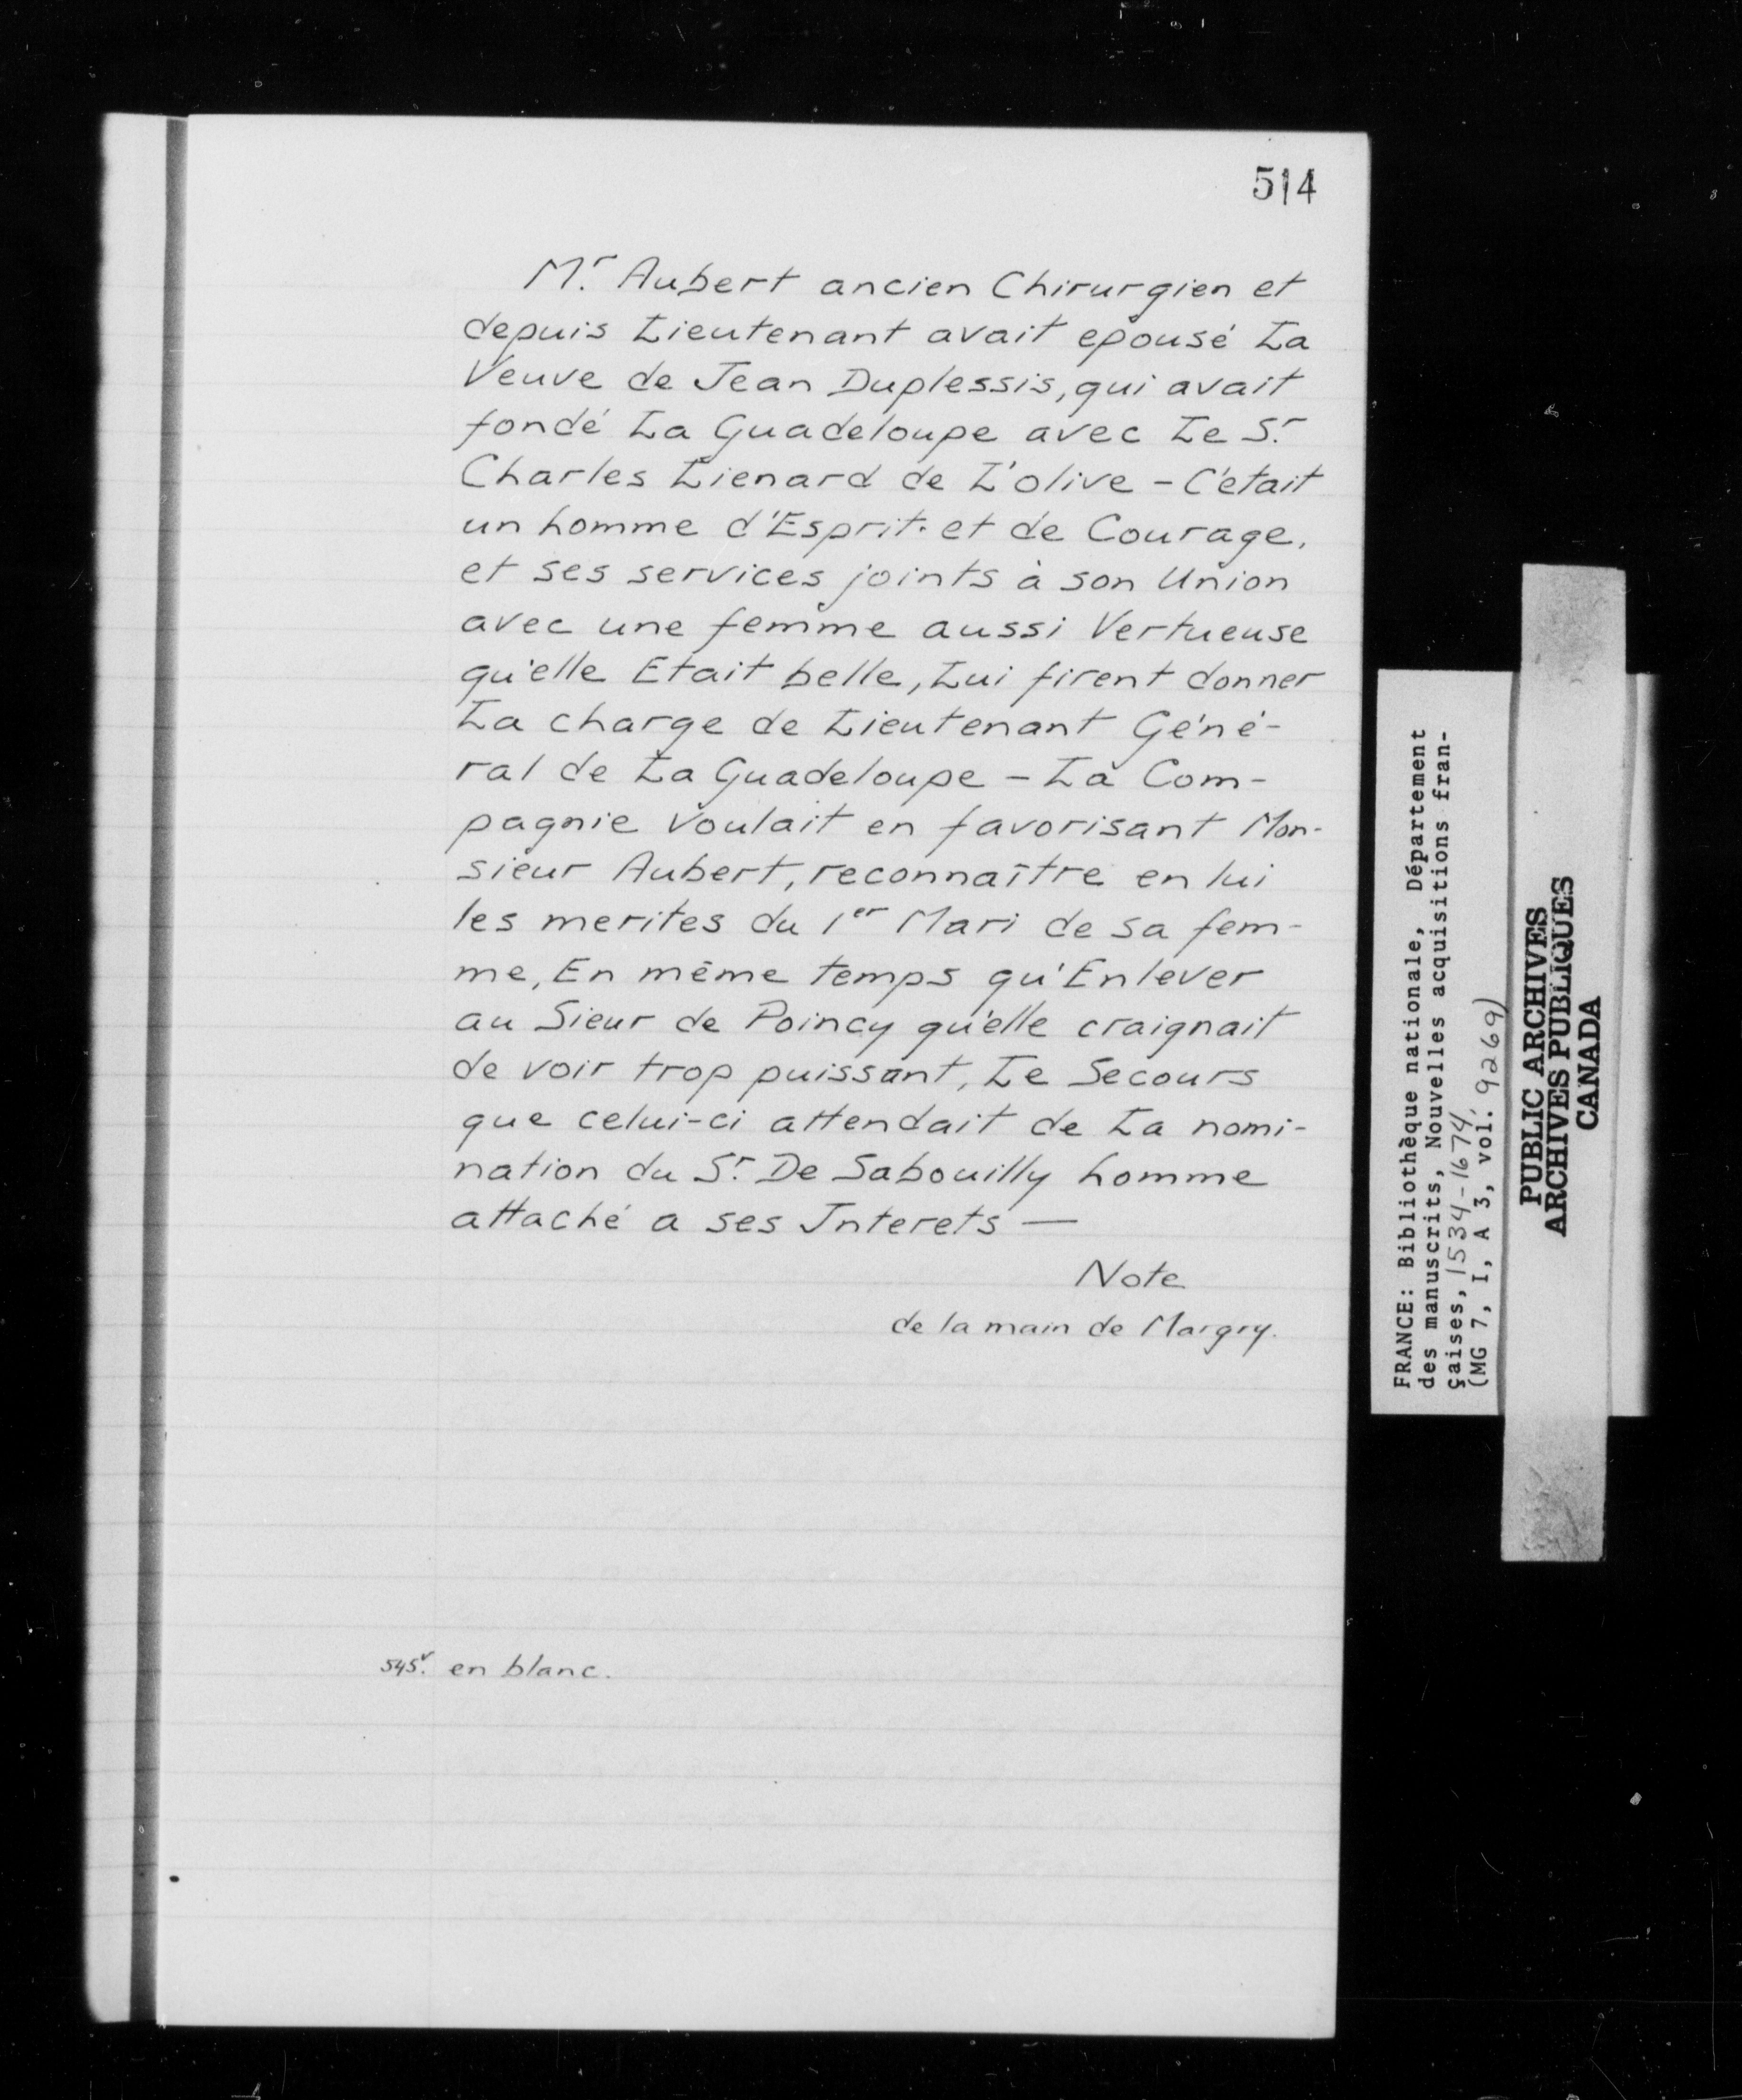 514
Mr. Aubert ancien Chirurgien et
depuis Lieutenant avait epousé La
Veuve de Jean Duplessis, qui avait
fondé La Guadeloupe avec Le Sr.
Charles Lienard de L'olive - C'était
un homme d'Esprit. et de Courage,
et ses services joints à son Union
avec une femme aussi Vertueuse
qu'elle Etait belle, Lui firent donner
La charge de Lieutenant Géné-
ral de La Guadeloupe - La Com-
pagnie Voulait en favorisant Mon-
sieur Aubert, reconnaître en lui
les merites du 1er Mari de sa fem-
me, En même temps qu'Enlever
au Sieur de Poincy qu'elle craignait
de voir trop puissant, Le Secours
que celui-ci attendait de La nomi-
nation du Sr. De Sabouilly homme
attaché a ses Interets —
Note
de la main de Margry.
545v. en blanc.
FRANCE: Bibliothèque nationale, Département
des manuscrits, Nouvelles acquisitions fran-
çaises, 1534-1674,
(MG 7, I, A 3, vol. 9269)
PUBLIC ARCHIVES
ARCHIVES PUBLIQUES
CANADA